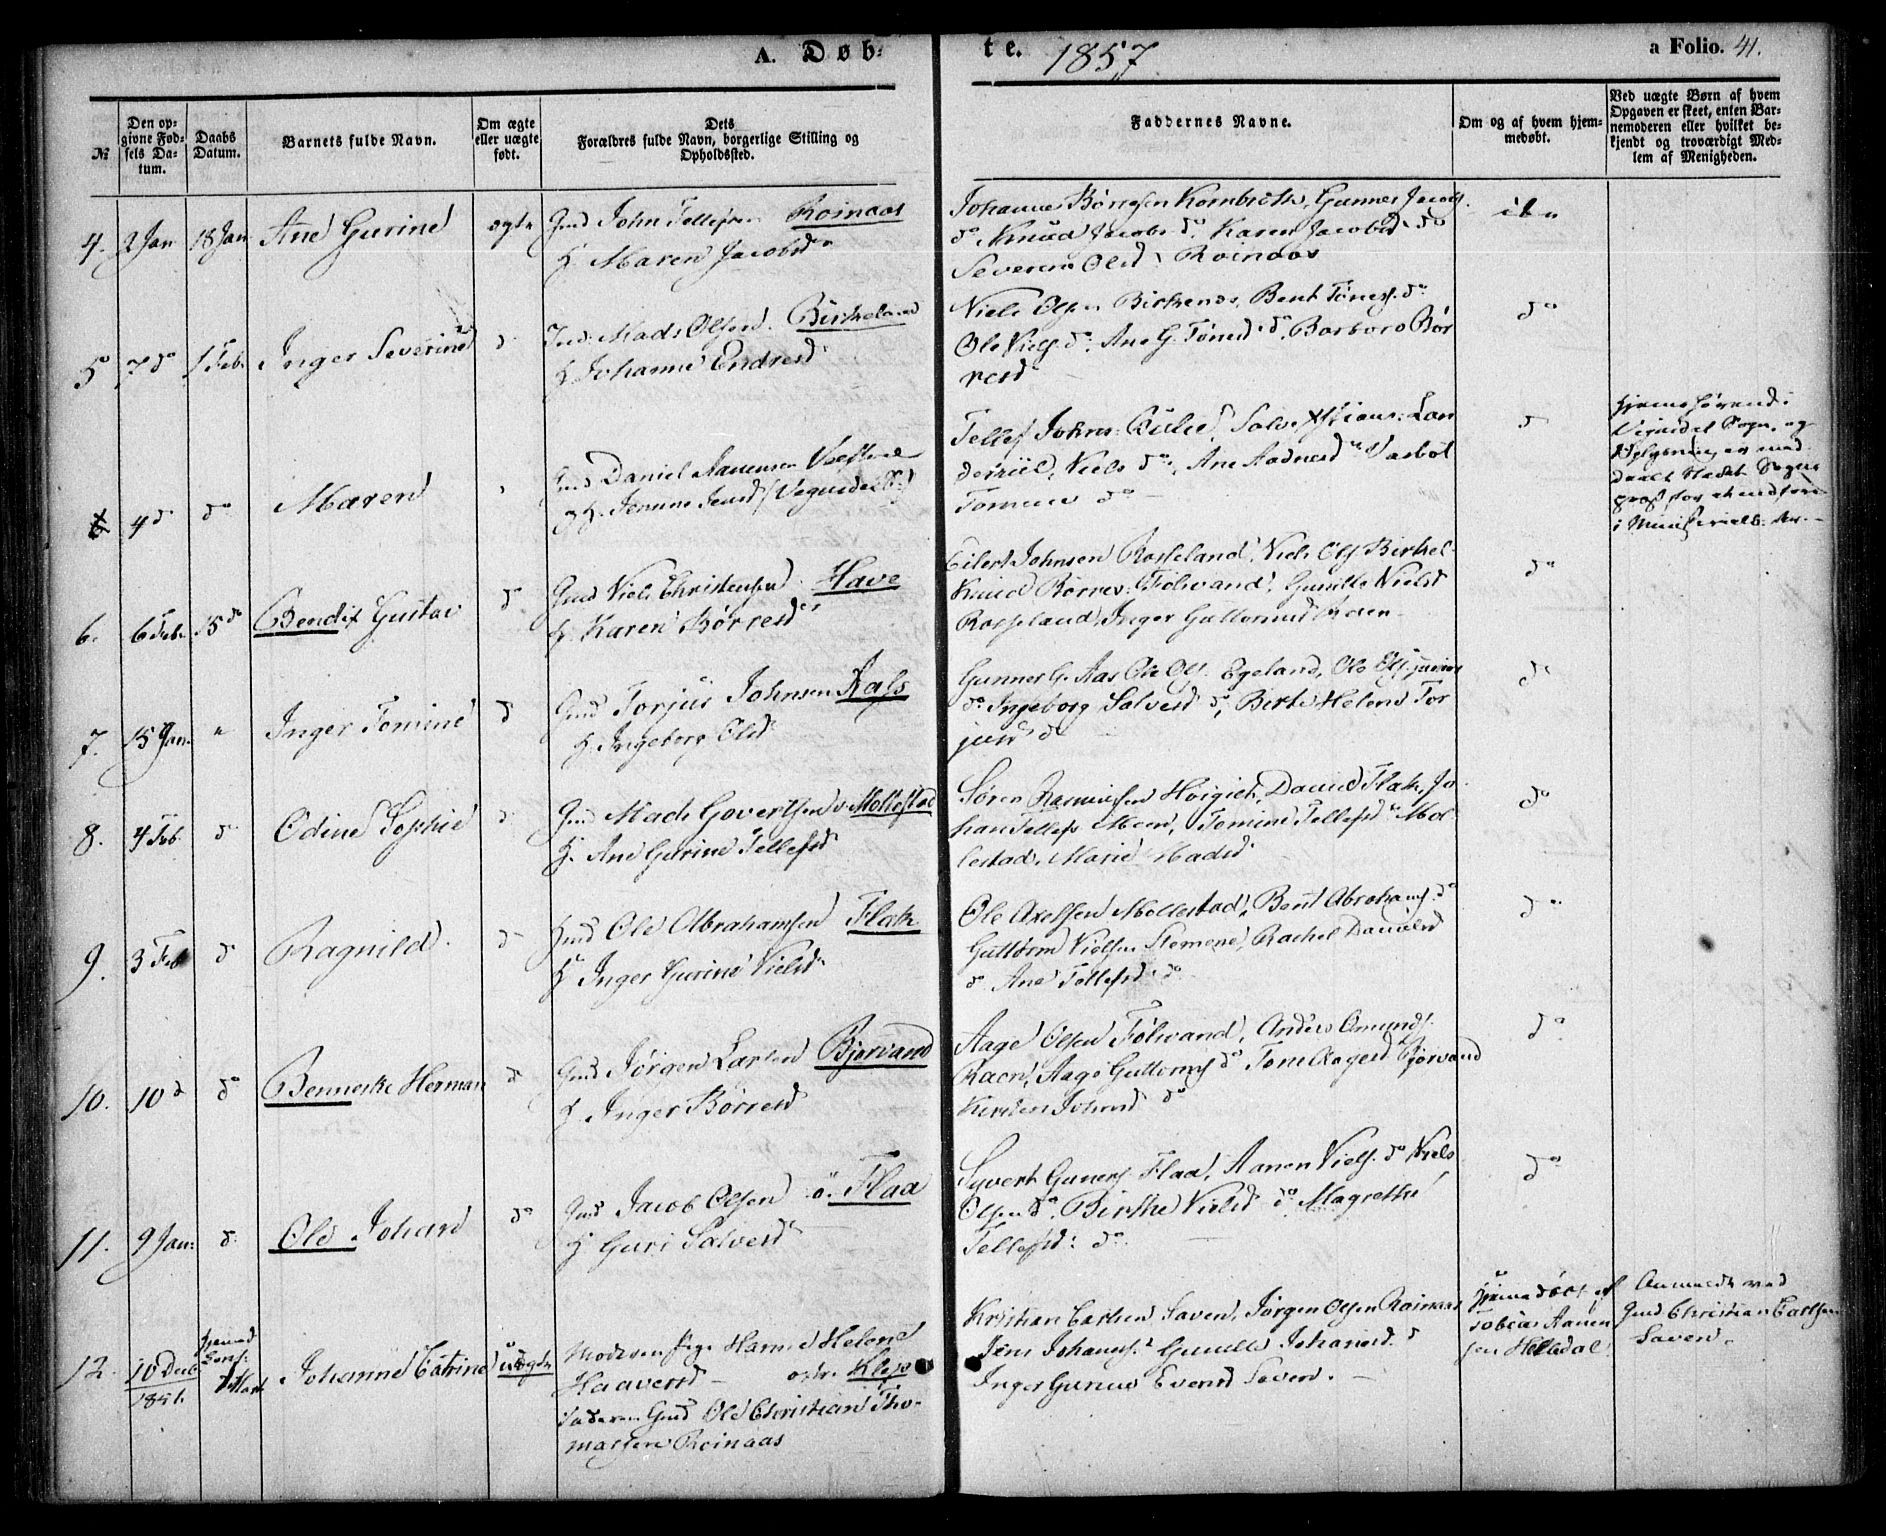 A. Døb-
te. 1857
a Folio. 41.
№
Den op-
givne Fød-
sels Da-
tum.
Daabs
Datum.
Barnets fulde Navn.
Om ægte
eller uægte
født.
Dets
Forældres fulde Navn, borgerlige Stilling og
Opholdssted.
Faddernes Navne.
Om og af hvem hjem-
medøbt.
Ved uægte Børn af hvem
Opgaven er skeet, enten Bar-
nemoderen eller hvilket be-
kjendt og troværdigt Med-
lem af Menigheden.
4. 2 Jan 18 Jan Ane Gurine ægte
Gmd John Tellefsen Roinaas
H. Maren Jacobsd
Gunner Jacobs.
do, Knud Jacobs do, Karen Jacobsd do
Severine Olsd Roinaas
5 7 do 1 Feb. Inger Severine do
Mads Olsen Birkeland
H Johanne Endresd
Niels Olsen Birkenes, Bent Tønes. do
Ole Niels. do, Ane G. Tønesd do, Barbara Bør
resd
do
6 4 do do Maren
Gmd Daniel Aanensen
Tellef Johns.
Niels do, Ane Aadnesd
Tomine do
do
hjemhørende i
Vegusdal Sogn, og
i Ministerialb.
6. 6 Feb. 15 do Bendix Gustav do
Gmd Niels Christensen Have
H. Karen Børresd
Eilert Johnsen Rosseland, Niels Ols Birkel.
Knud Børres. Følvand, Gunille Nielsd
Rosseland, Inger Guttormsd
do
7. 15 Jan. Inger Tomine do
Gmd Torjus Johnsen
H. Ingeborg Olsd
Gunner G. Aas Ole Ols. Egeland, Ole Ols. junior
do Ingeborg Salvesd do, Birte Helene Tor
jusd do
do
8. 4 Feb. do Odine Sophie do
Gmd Mads Govertsen Mollestad
H. Ane Gurine Tellefsd
Søren Rasmussen Høigilt, Daniel Flak, Jo
han Tellefs Moen, Tomine Tellefsd Mol
lestad, Marie Madsd
do
9. 3 Feb do Ragnild. do
Gmd Ole Abrahamsen Flak
H Inger Gurine Nielsd
Ole Axelsen Mollestad, Bent Abrahams. do
Guttorm Nielsen Stemene, Rachel Danielsd
do Ane Tellefsd do
do
10. 10 do do Bennerke Herman do
Gmd Jørgen Larsen Bjorvand
H Inger Børresd
Aage Olsen Følvand, Anders Omunds.
Raen, Aage Guttorms do Tone Aagesd Bjorvand
Kirsten Johnsd do
do
11. 9 Jan: do Ole Johan do
Gmd Jacob Olsen ø. Flaa
H Guri Salvesd
Syvert Guners. Flaa, Aanen Niels. do Niels
Olsen do, Birthe Nielsd do, Magrethe
Tellefsd: do
do
12. 10 Dec
Johanne Catrine uægte
Moderen Pige Hanne Helene
Haaversd Klep
Faderen Gmd Ole Christian Tho-
massen Roinaas
Kristian Carlsen Saven, Jørgen Olsen Roinaas
Jens Johans. do Gunille Johansd. do
Inger Gurine Evensd Saven.
Hjemedøbt af
Tobias Aanen
sen Helledal
Anmeldt ved
Gmd Christian Carlsen
Saven.